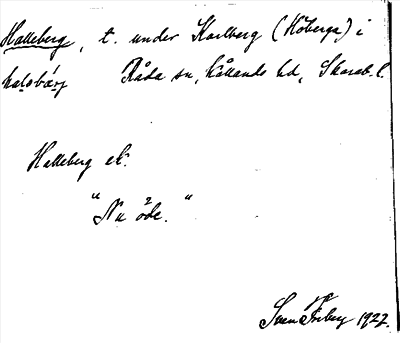 Halleberg, t. under Karlberg (Köberga) i
Råda sn, Kållands hd, Skarab. l.
Halleberg ek.
"Nu öde."
Sven 1927.